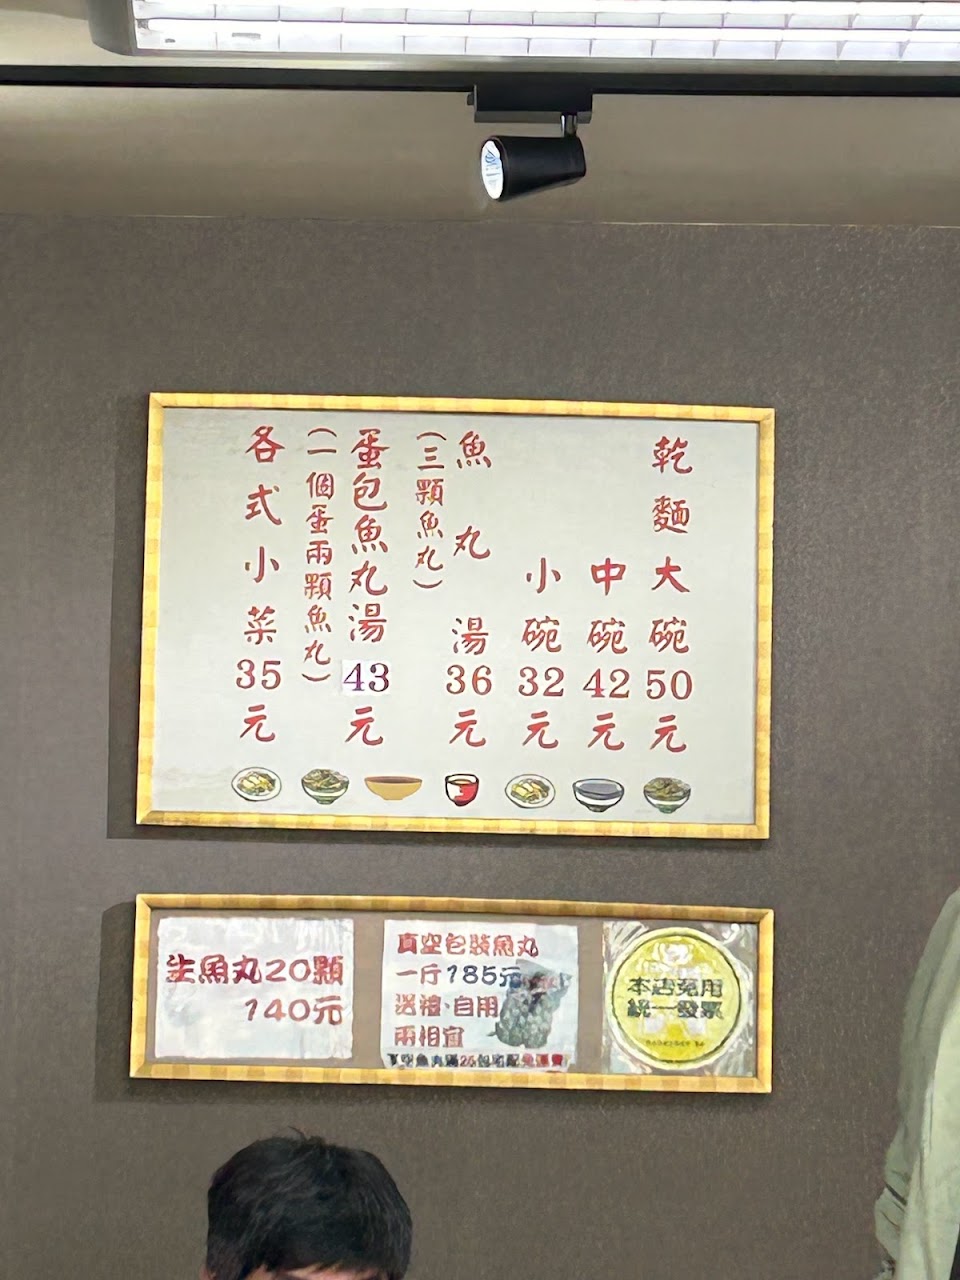 乾麵大碗50元
中碗42元
小碗32元
魚丸湯36元
(三顆魚丸)
蛋包魚丸湯43元
(一個蛋兩顆魚丸)
各式小菜35元
生魚丸20顆
140元
真空包裝魚丸
一斤185元
送禮·自用
兩相宜
真空魚丸滿25包宅配免運費
本店免用
統一發票